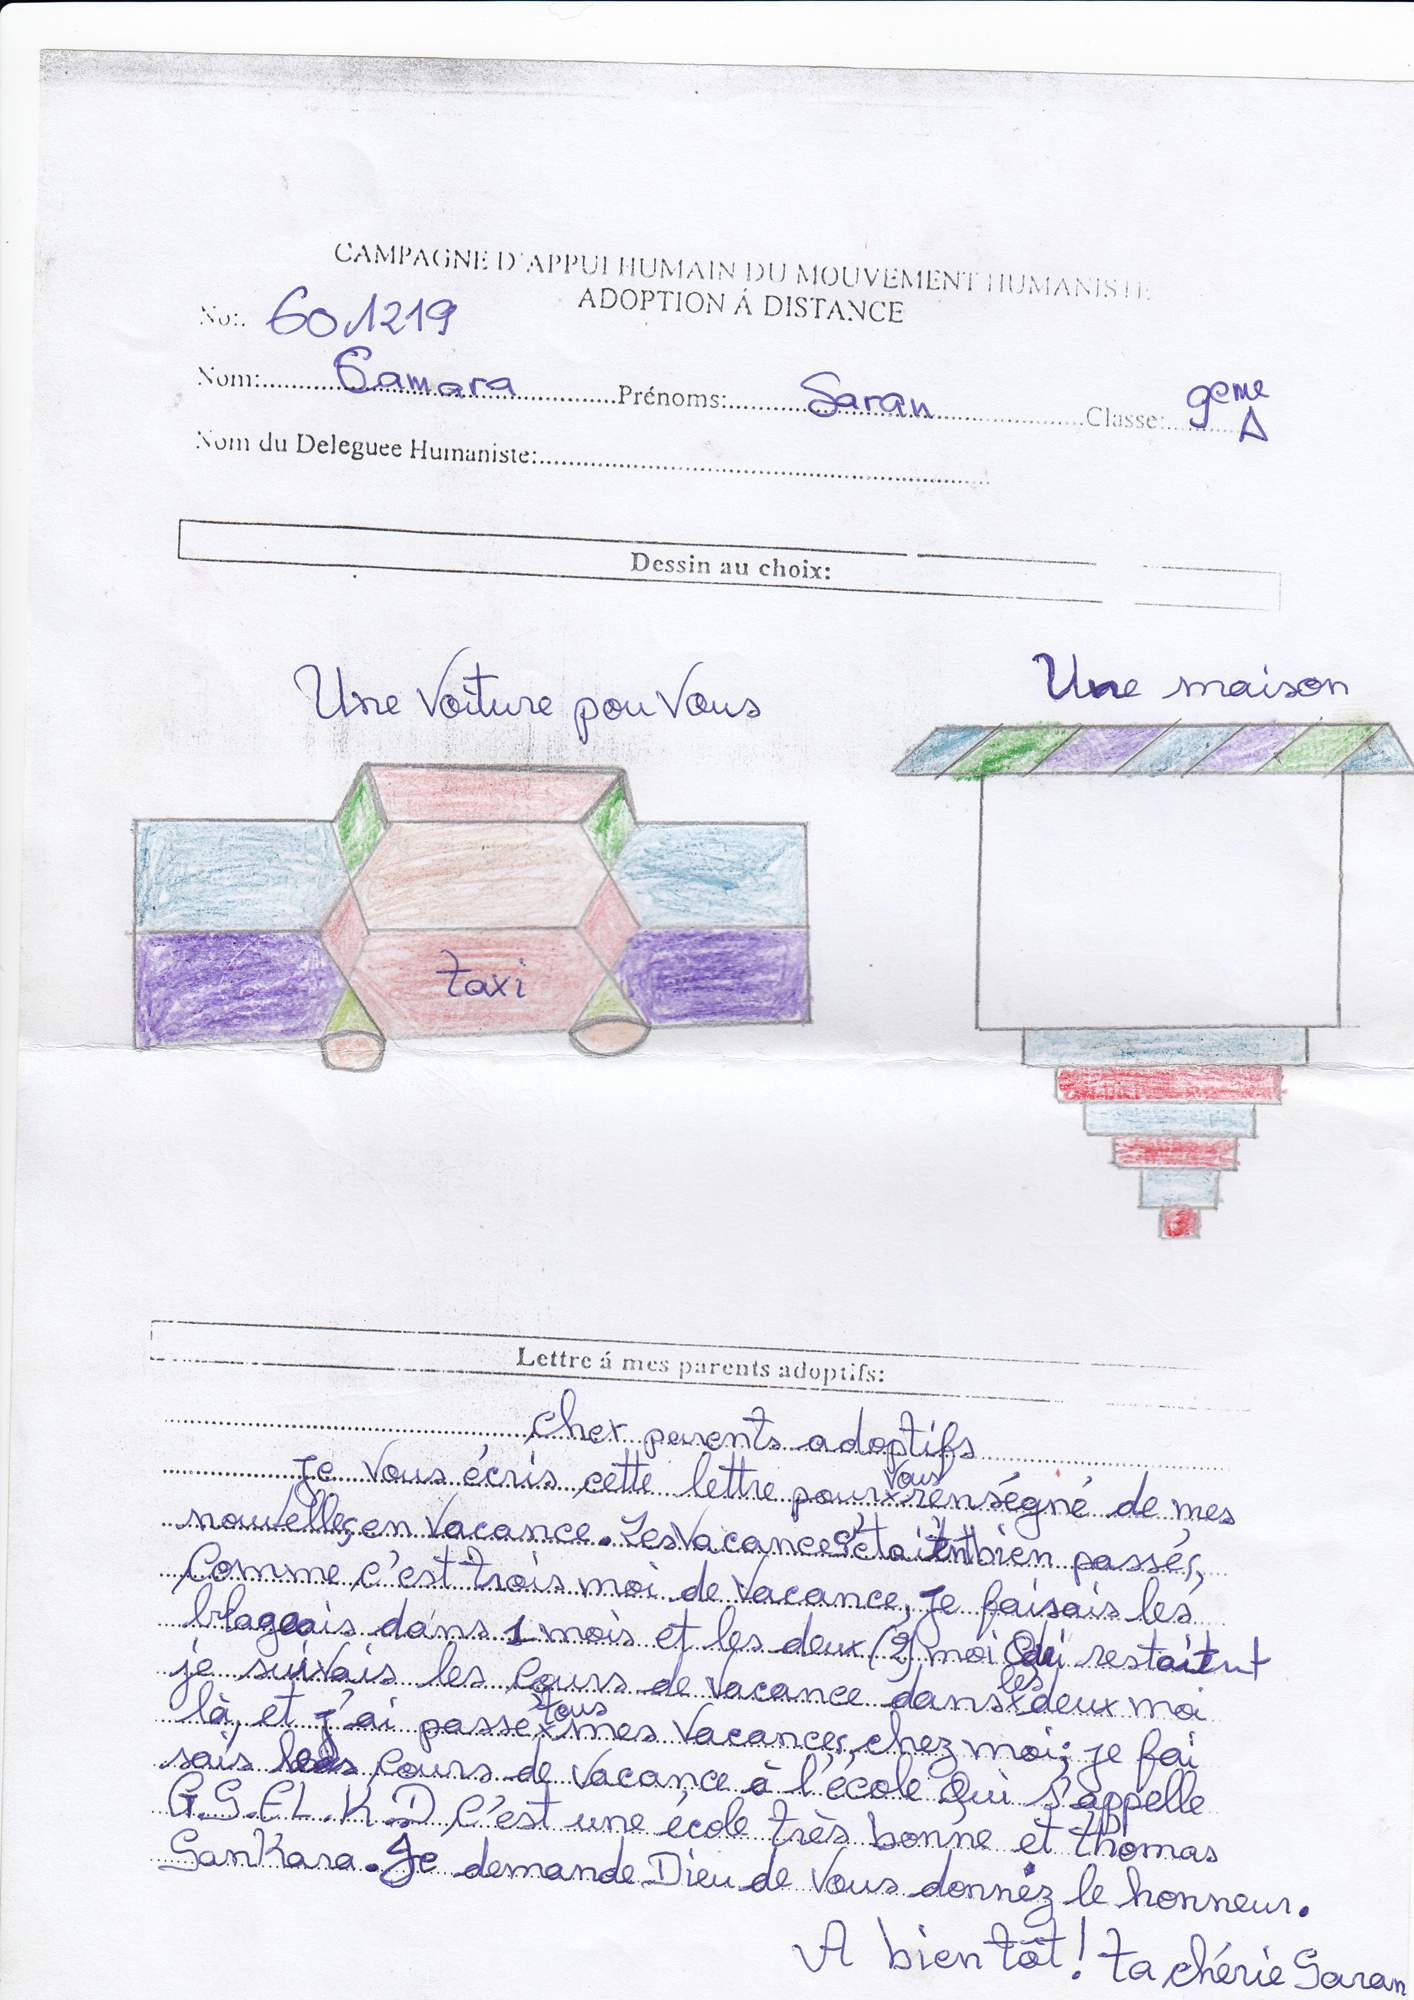 CAMPAGNE D'APPUI HUMAIN DU MOUVEMENT HUMANISTE
ADOPTION Á DISTANCE
No:. 601219
Nom: Camara Prénoms: Saran Classe: 9eme A
Nom du Deleguee Humaniste:
Dessin au choix:
Une voiture pou vous
Une maison
taxi
Lettre á mes parents adoptifs:
cher parents adoptifs
Je vous écris cette lettre pour vous renségné de mes
nouvelles, en vacance. Les vacances étaient bien passés,
Comme c'est trois moi de vacance, Je faisais les
dans 1 mois et les deux (2) moi Qui restaient
je suivais les cours de vacance dans les deux moi
là, et j'ai passe tous mes vacances, chez moi; je fai
sais les cours de vacance à l'école Qui s'appelle
G.S.EL.K.D C'est une école très bonne et thomas
SanKara. Je demande Dieu de vous donnéz le honneur.
A bientôt! ta chérie Saran